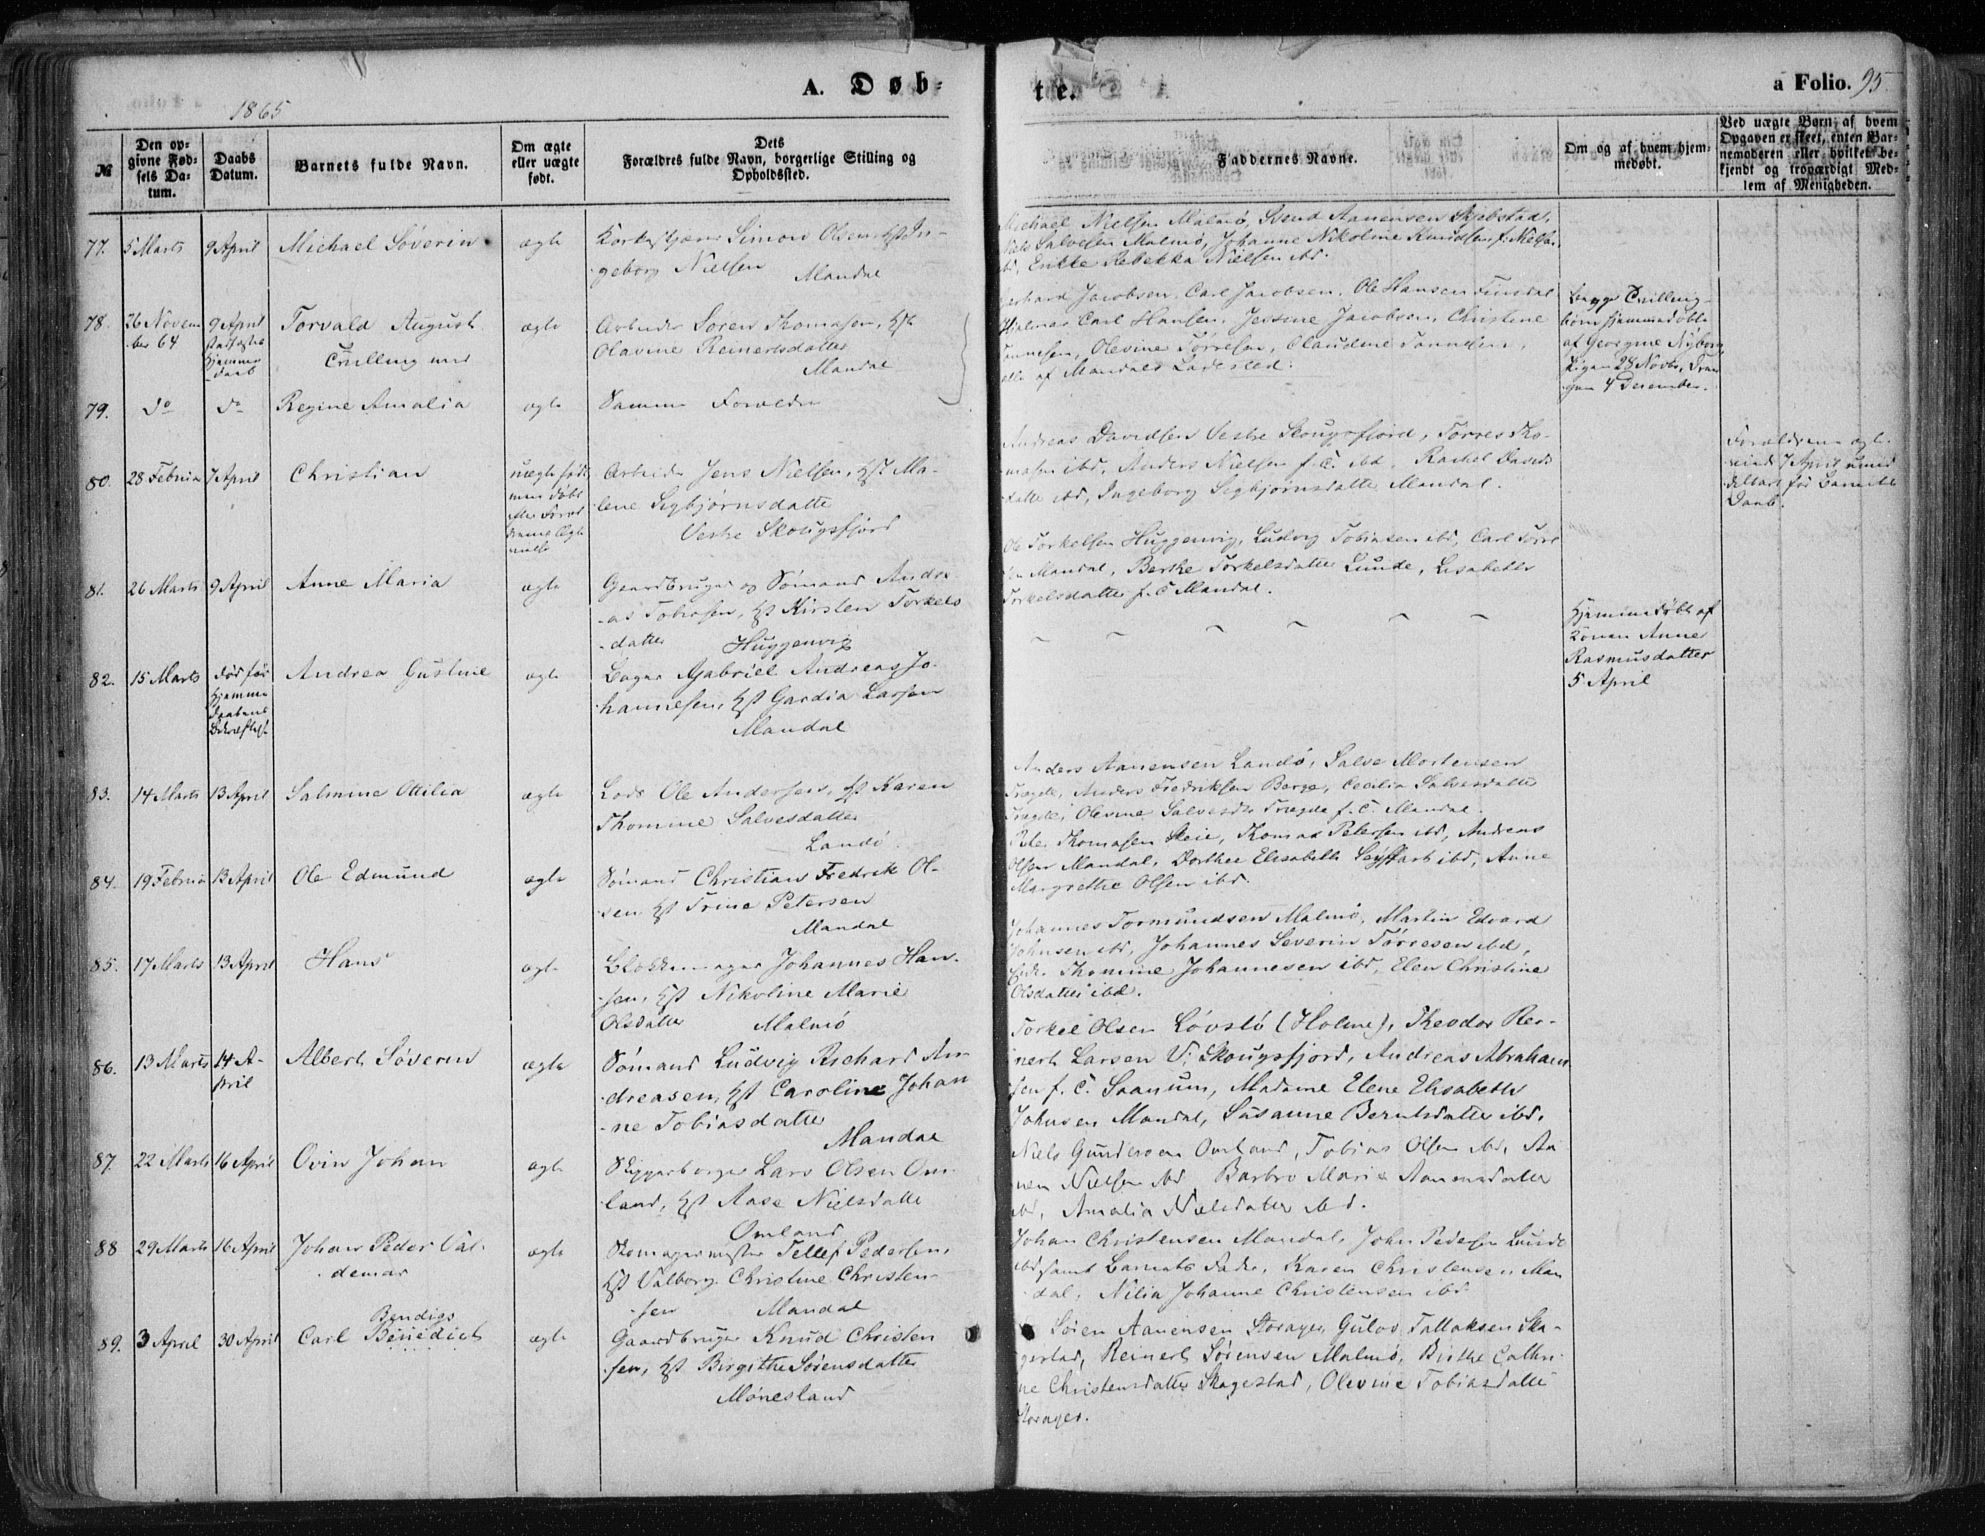 A. Døb-
te.
a Folio. 95
1865
№
Den op-
givne Fød-
sels Da-
tum.
Daabs
Datum.
Barnets fulde Navn.
Om ægte
eller uægte
født.
Dets
Forældres fulde Navn, borgerlige Stilling og
Opholdssted.
Faddernes Navne.
Om og af hvem hjem-
medøbt.
Ved uægte Børn, af hvem
Opgaven er skeet, enten Bar-
nemoderen eller hvilket be-
kjendt og troværdigt Med-
lem af Menigheden.
77. 5 Marts 9 April Michael Severin ægte
Simon Olsen Hst In-
geborg Nielsen
Mandal
Michael Nielsen Malmø, Svend Aanensen Skjebstad,
Niels Salvesen Malmø, Johanne Nikoline Knudsen f. Nielsen
ibd, Enke Rebekka Nielsen ibd.
78. 26 Novem
ber 64
9 April
stadfæstet
Hjemme
daab
Torvald August
Tvilling med
ægte
Arbeider Søren Thomasen, Hst
Olavine Reinertsdatter
Mandal
Gerhard Jacobsen, Carl Jacobsen, Ole Hansen Finsdal
Hjalmar Carl Hansen, Jessine Jacobsen, Christine
Tønnesen, Olevine Tørresen, Olaudine Tønnesen,
alle af Mandals Ladested.
begge Tvilling-
børn hjemmedøbte
af Georgine Nyborg
Pigen 28 Novbr, Dren
gen 4 December.
79. do do Regine Amalia ægte Samme Forældre
80. 28 Februar 7 April Christian
uægte født
men døbt
efter Foræl
drenes Ægte
Arbeider Jens Nielsen, Hst Ma-
lene Sigbjørnsdatter
Vestre Skougsfjord
Andreas Davidsen Vestre Skougsfjord, Tørres Tho-
masen ibd, Anders Nielsen f. C. ibd, Rachel Davids
datter ibd, Ingeborg Sigbjørnsdatter Mandal.
Forældrene ægte-
viede 7 April umid
delbart før Barnets
Daab.
81. 26 Marts 9 April Anne Maria ægte
Gaardbruger og Sømand Andre
-as Tobiasen, Hst Kirsten Torkels
-datter Huggenvig
Ole Torkelsen Huggenvig, Ludvig Tobiasen ibd, Carl Torre
sen Mandal, Berthe Torkelsdatter Lunde, Lisabeth
Torkelsdatter f. C Mandal.
82. 15 Marts
død før
Hjemme
daabens
Bekræftelse
Andrea Gustine ægte
Bager Gabriel Andreas Jo-
hannesen, Hst Gardia Larsen
Mandal
Hjemmedøbt af
Konen Anne
Rasmusdatter
5 April
83. 14 Marts 13 April Salmine Ottilia ægte
Lods Ole Andersen, Hst Karen
Thomine Salvesdatter
Landø
Anders Aanensen Landø, Salve Mortensen
Trægde, Anders Fredriksen Berge, Cecilia Salvesdatter
Trægde, Olevine Salvesdtr Trægde f. C. Mandal.
84. 19 Februar 13 April Ole Edmund ægte
Sømand Christian Fredrik Ol-
sen Hst Trine Petersen
Mandal
Peter Thomasen Skeie, Thomas Petersen ibd, Andreas
Olsen Mandal, Dorthee Elisabeth Seyffart ibd, Anne
Margrethe Olsen ibd.
85. 17 Marts 13 April Hans ægte
Blokkemager Johannes Han-
-sen, Hst Nikoline Marie
Olsdatter Malmø
Johannes Tormundsen Malmø, Martin Edvard
Johnsen ibd, Johannes Severin Tørresen ibd,
Thomine Johannesen ibd, Elen Christine
Olsdatter ibd.
86. 13 Marts 14 A-
pril
Albert Søveren ægte
Sømand Ludvig Richard An-
dreasen, Hst Caroline Johan
-ne Tobiasdatter
Mandal
Torkel Olsen Løvslø (Holme), Theodor Rei-
nert Larsen V. Skougsfjord, Andreas Abraham
sen f. C. Saanum, Madame Elene Elisabeth
Johnsen Mandal, Susanne Berntsdatter ibd.
87. 22 Marts 16 April Ovin Johan ægte
Skiggerborger Lars Olsen Om-
land, Hst Aase Nielsdatter
Omland
Niels Gundersen Omland, Tobias Olsen ibd, Aa
nen Nielsen ibd Barbro Marie Aanensdatter
ibd, Amalia Nielsdatter ibd.
88 29 Marts 16 April Johan Peder Val-
demar
ægte
Skomagermester Tellef Pedersen,
Hst Valborg Christine Christen-
sen Mandal
Johan Christensen Mandal, John Pedersen Lunde
ibd samt Barnets Fader, Karen Christensen Man
dal, Nilia Johanne Christensen ibd
89. 3 April 30 April Carl Benedict
Bendigs
ægte
Gaardbruger Knud Christen
sen, Hst Birgithe Sørensdatter
Mønesland
Søren Aanensen Storager, Gulov Tallaksen Ska-
gestad, Reinert Sørensen Malmø, Birthe Cathri-
ne Christensdatter Skagestad, Olevine Tobiasdatter
Storager.